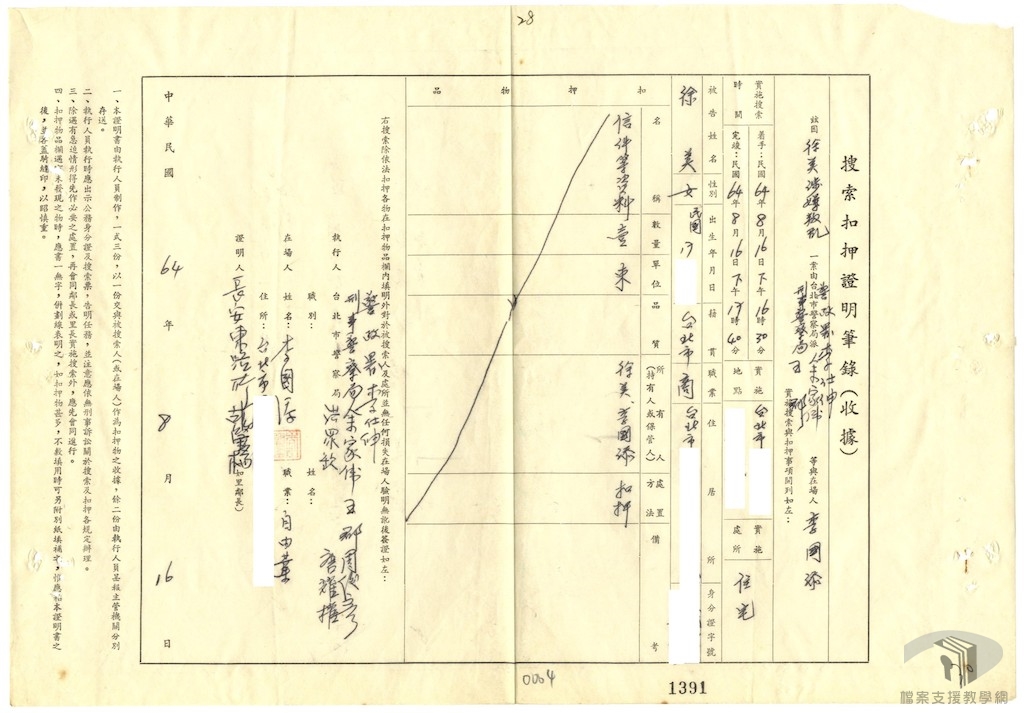 28
搜索扣押證明筆錄(收據)
茲因徐美涉嫌叛亂一案由台北市警察局派
警政署李仕坤
刑事警察局余家偉
等與在場人李國添
實施搜索與扣押事項開列如左：
實施搜索時間
著手：民國64年8月16日下午16時30分
完竣：民國64年8月16日下午17時40分
實施地點
台北市
實施處所
住宅
被告姓名
性別
出生年月日
籍貫
職業
住居所
身分證字號
徐美
女
民國17
台北市
商
台北市
扣押物品
名稱
數量
單位
品質
所有人(持有人或保管人)
處置方法
備考
信件等資料壹束
徐美、李國添
扣押
右搜索除依法扣押各物在扣押物品欄內填明外對於被搜索人及處所並無任何損失在場人驗明無訛後簽證如左：
執行人
台北市警察局
警政署李仕坤
刑事警察局余家偉
職別：
姓名：
在場人
姓名：李國添
職業：自由業
住所：台北市
證明人
長安東路所
(如里鄰長)
中華民國64年8月16日
一、本證明書由執行人員制作，一式三份，以一份交與被搜索人(或在場人)作為扣押物之收據，餘二份由執行人員呈報主管機關分別存送。
二、執行人員執行時應出示公務身分證及搜索票，告明任務，並注意應依無刑事訴訟關於搜索及扣押各規定辦理。
三、除遇有急迫情形得先作必要之處置，再會同鄰長或里長實施搜索外，應先會同進行。
四、扣押物品欄遇有未發現之物時，應書一無字，併劃線表明之，如扣押物甚多，不敷填用時可另附別紙填補之，惟應粘本證明書之後，並各蓋騎縫印，以昭慎重。
0004
1391
檔案支援教學網